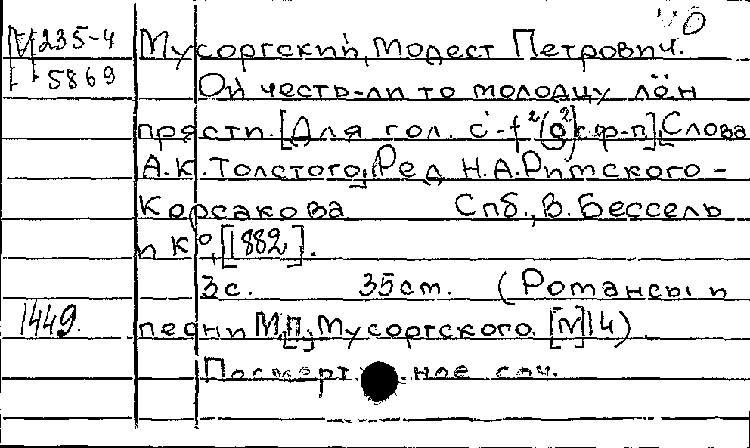 М235-4 Мусоргский, Модест Петрович.
5869 Ой честь-ли то молодцу лён
прясти. [Для гол. c'-f²(g²) с ф-п]. Слова
А.К. Толстого. Ред Н.А. Римского-
Корсакова Спб., В. Бессель
и К⁰, [1882].
3с. 35см. (Романсы и
1449. песни М.П. Мусоргского. [№]14)
Посмертное соч.